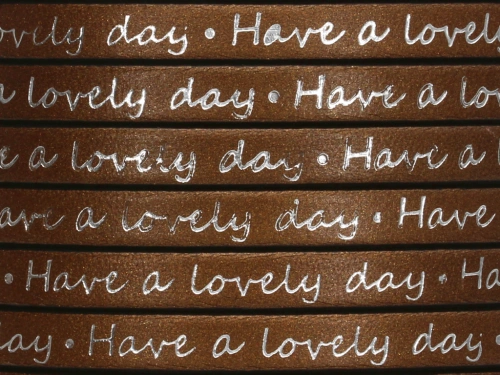 ovely day • Have a lovel
a lovely day • Have a lo
e a lovely day • Have a l
ave a lovely day • Have
• Have a lovely day • Ha
day • Have a lovely day •